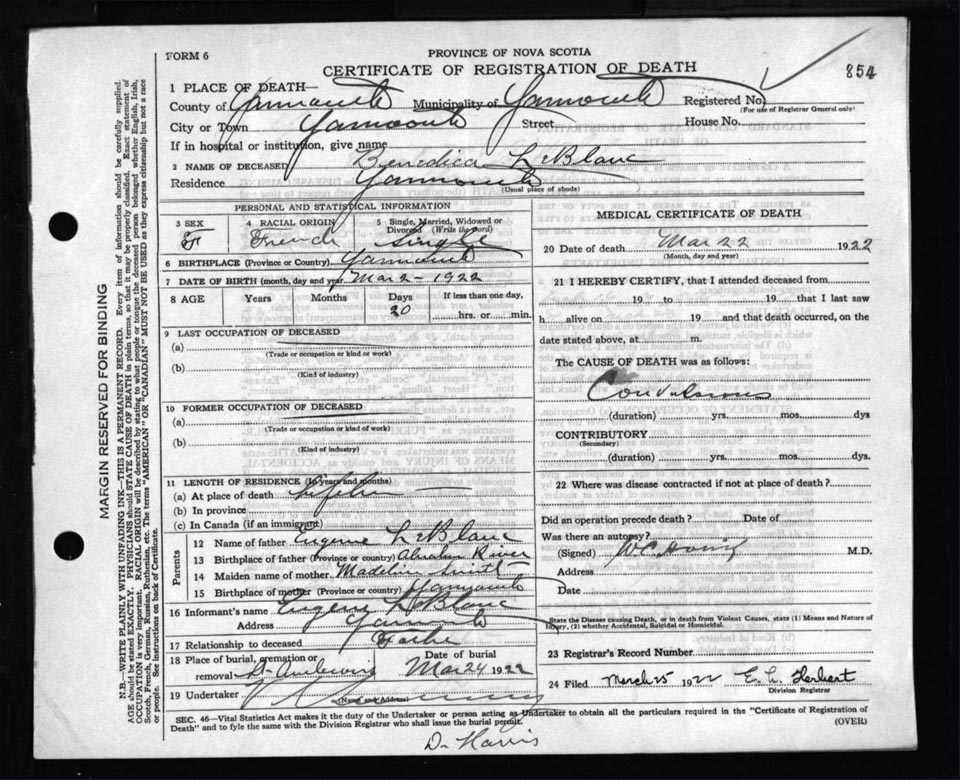 FORM 6
PROVINCE OF NOVA SCOTIA
CERTIFICATE OF REGISTRATION OF DEATH
854
1 PLACE OF DEATH—
County of Yarmouth Municipality of Yarmouth Registered No.
(For use of Registrar General only)
City or Town Yarmouth Street House No.
If in hospital or institution, give name
2 NAME OF DECEASED Benedica LeBlanc
Residence Yarmouth
(Usual place of abode)
MARGIN RESERVED FOR BINDING
N.B.—WRITE PLAINLY WITH UNFADING INK—THIS IS A PERMANENT RECORD. Every item of information should be carefully supplied.
AGE should be stated EXACTLY. PHYSICIANS should STATE CAUSE OF DEATH in plain terms, so that it may be properly classified. Exact statement of
OCCUPATION is very important. RACIAL ORIGIN will be described by stating to what people or tongue the deceased person belonged whether English, Irish,
Scotch, French, German, Russian, Ruthenian, etc. The terms "AMERICAN" OR "CANADIAN" MUST NOT BE USED as they express citizenship but not a race
or people. See instructions on back of Certificate.
PERSONAL AND STATISTICAL INFORMATION
3 SEX 4 RACIAL ORIGIN 5 Single, Married, Widowed or
Divorced (Write the word)
F French Single
6 BIRTHPLACE (Province or Country) Yarmouth
7 DATE OF BIRTH (month, day and year) Mar 2 - 1922
8 AGE Years Months Days If less than one day,
20 hrs. or min.
9 LAST OCCUPATION OF DECEASED
(a)
(Trade or occupation or kind or work)
(b)
(Kind of industry)
10 FORMER OCCUPATION OF DECEASED
(a)
(Trade or occupation or kind of work)
(b)
(Kind of industry)
11 LENGTH OF RESIDENCE (In years and months)
(a) At place of death
(b) In province
(c) In Canada (if an immigrant)
Parents
12 Name of father Eugene LeBlanc
13 Birthplace of father (Province or country) River
14 Maiden name of mother Madeline
15 Birthplace of mother (Province or country) Yarmouth
16 Informant's name Eugene LeBlanc
Address Yarmouth
17 Relationship to deceased Father
18 Place of burial, cremation or Date of burial
removal Mar 24 1922
19 Undertaker
(Name and Address)
MEDICAL CERTIFICATE OF DEATH
20 Date of death Mar 22 1922
(Month, day and year)
21 I HEREBY CERTIFY, that I attended deceased from
19 to 19 that I last saw
h alive on 19 and that death occurred, on the
date stated above, at m.
The CAUSE OF DEATH was as follows:
Convulsions
(duration) yrs. mos. dys
CONTRIBUTORY
(Secondary)
(duration) yrs. mos. dys.
22 Where was disease contracted if not at place of death?
Did an operation precede death? Date of
Was there an autopsy?
(Signed) M.D.
Address
Date
State the Disease causing Death, or in death from Violent Causes, state (1) Means and Nature of
Injury, (2) whether Accidental, Suicidal or Homicidal.
23 Registrar's Record Number
24 Filed March 25 1922 E. L. Herbert
Division Registrar
SEC. 46—Vital Statistics Act makes it the duty of the Undertaker or person acting as Undertaker to obtain all the particulars required in the "Certificate of Registration of
Death" and to fyle the same with the Division Registrar who shall issue the burial permit.
(OVER)
D. Harris